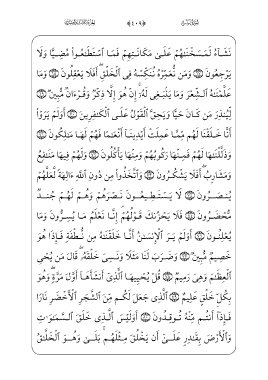 نَشَآءُ لَمَسَخْنَٰهُمْ عَلَىٰ مَكَانَتِهِمْ فَمَا ٱسْتَطَٰعُوا۟ مُضِيًّا وَلَا
يَرْجِعُونَ وَمَن نُّعَمِّرْهُ نُنَكِّسْهُ فِى ٱلْخَلْقِ ۖ أَفَلَا يَعْقِلُونَ وَمَا
عَلَّمْنَٰهُ ٱلشِّعْرَ وَمَا يَنۢبَغِى لَهُۥٓ ۚ إِنْ هُوَ إِلَّا ذِكْرٌ وَقُرْءَانٌ مُّبِينٌ
لِّيُنذِرَ مَن كَانَ حَيًّا وَيَحِقَّ ٱلْقَوْلُ عَلَى ٱلْكَٰفِرِينَ أَوَلَمْ يَرَوْا۟
أَنَّا خَلَقْنَا لَهُم مِّمَّا عَمِلَتْ أَيْدِينَآ أَنْعَٰمًا فَهُمْ لَهَا مَٰلِكُونَ
وَذَلَّلْنَٰهَا لَهُمْ فَمِنْهَا رَكُوبُهُمْ وَمِنْهَا يَأْكُلُونَ وَلَهُمْ فِيهَا مَنَٰفِعُ
وَمَشَارِبُ ۖ أَفَلَا يَشْكُرُونَ وَٱتَّخَذُوا۟ مِن دُونِ ٱللَّهِ ءَالِهَةً لَّعَلَّهُمْ
يُنصَرُونَ لَا يَسْتَطِيعُونَ نَصْرَهُمْ وَهُمْ لَهُمْ جُندٌ
مُّحْضَرُونَ فَلَا يَحْزُنكَ قَوْلُهُمْ ۘ إِنَّا نَعْلَمُ مَا يُسِرُّونَ وَمَا
يُعْلِنُونَ أَوَلَمْ يَرَ ٱلْإِنسَٰنُ أَنَّا خَلَقْنَٰهُ مِن نُّطْفَةٍ فَإِذَا هُوَ
خَصِيمٌ مُّبِينٌ وَضَرَبَ لَنَا مَثَلًا وَنَسِىَ خَلْقَهُۥ ۖ قَالَ مَن يُحْىِ
ٱلْعِظَٰمَ وَهِىَ رَمِيمٌ قُلْ يُحْيِيهَا ٱلَّذِىٓ أَنشَأَهَآ أَوَّلَ مَرَّةٍ ۖ وَهُوَ
بِكُلِّ خَلْقٍ عَلِيمٌ ٱلَّذِى جَعَلَ لَكُم مِّنَ ٱلشَّجَرِ ٱلْأَخْضَرِ نَارًا
فَإِذَآ أَنتُم مِّنْهُ تُوقِدُونَ أَوَلَيْسَ ٱلَّذِى خَلَقَ ٱلسَّمَٰوَٰتِ
وَٱلْأَرْضَ بِقَٰدِرٍ عَلَىٰٓ أَن يَخْلُقَ مِثْلَهُم ۚ بَلَىٰ وَهُوَ ٱلْخَلَّٰقُ